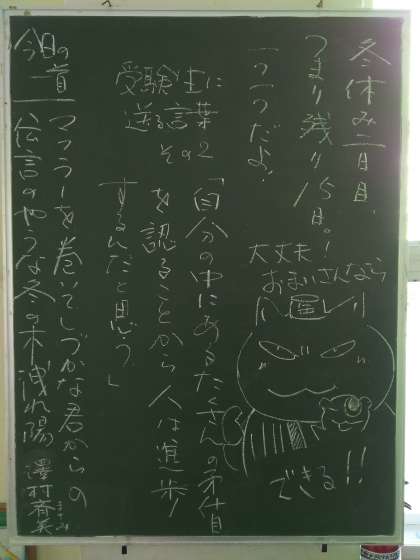 冬休み二日目、
つまり残り15日。!
一つ一つだよ!
受験生に
送る言葉
その2
「自分の中にあるたくさんの矛盾
を認ることから人は進歩
するんだと思う。」
大丈夫
おまいさんなら
できる!!
今日の一首
マフラーを巻いてしづかな君からの
伝言のやうな冬の木洩れ陽
澤村斉美
まさみ